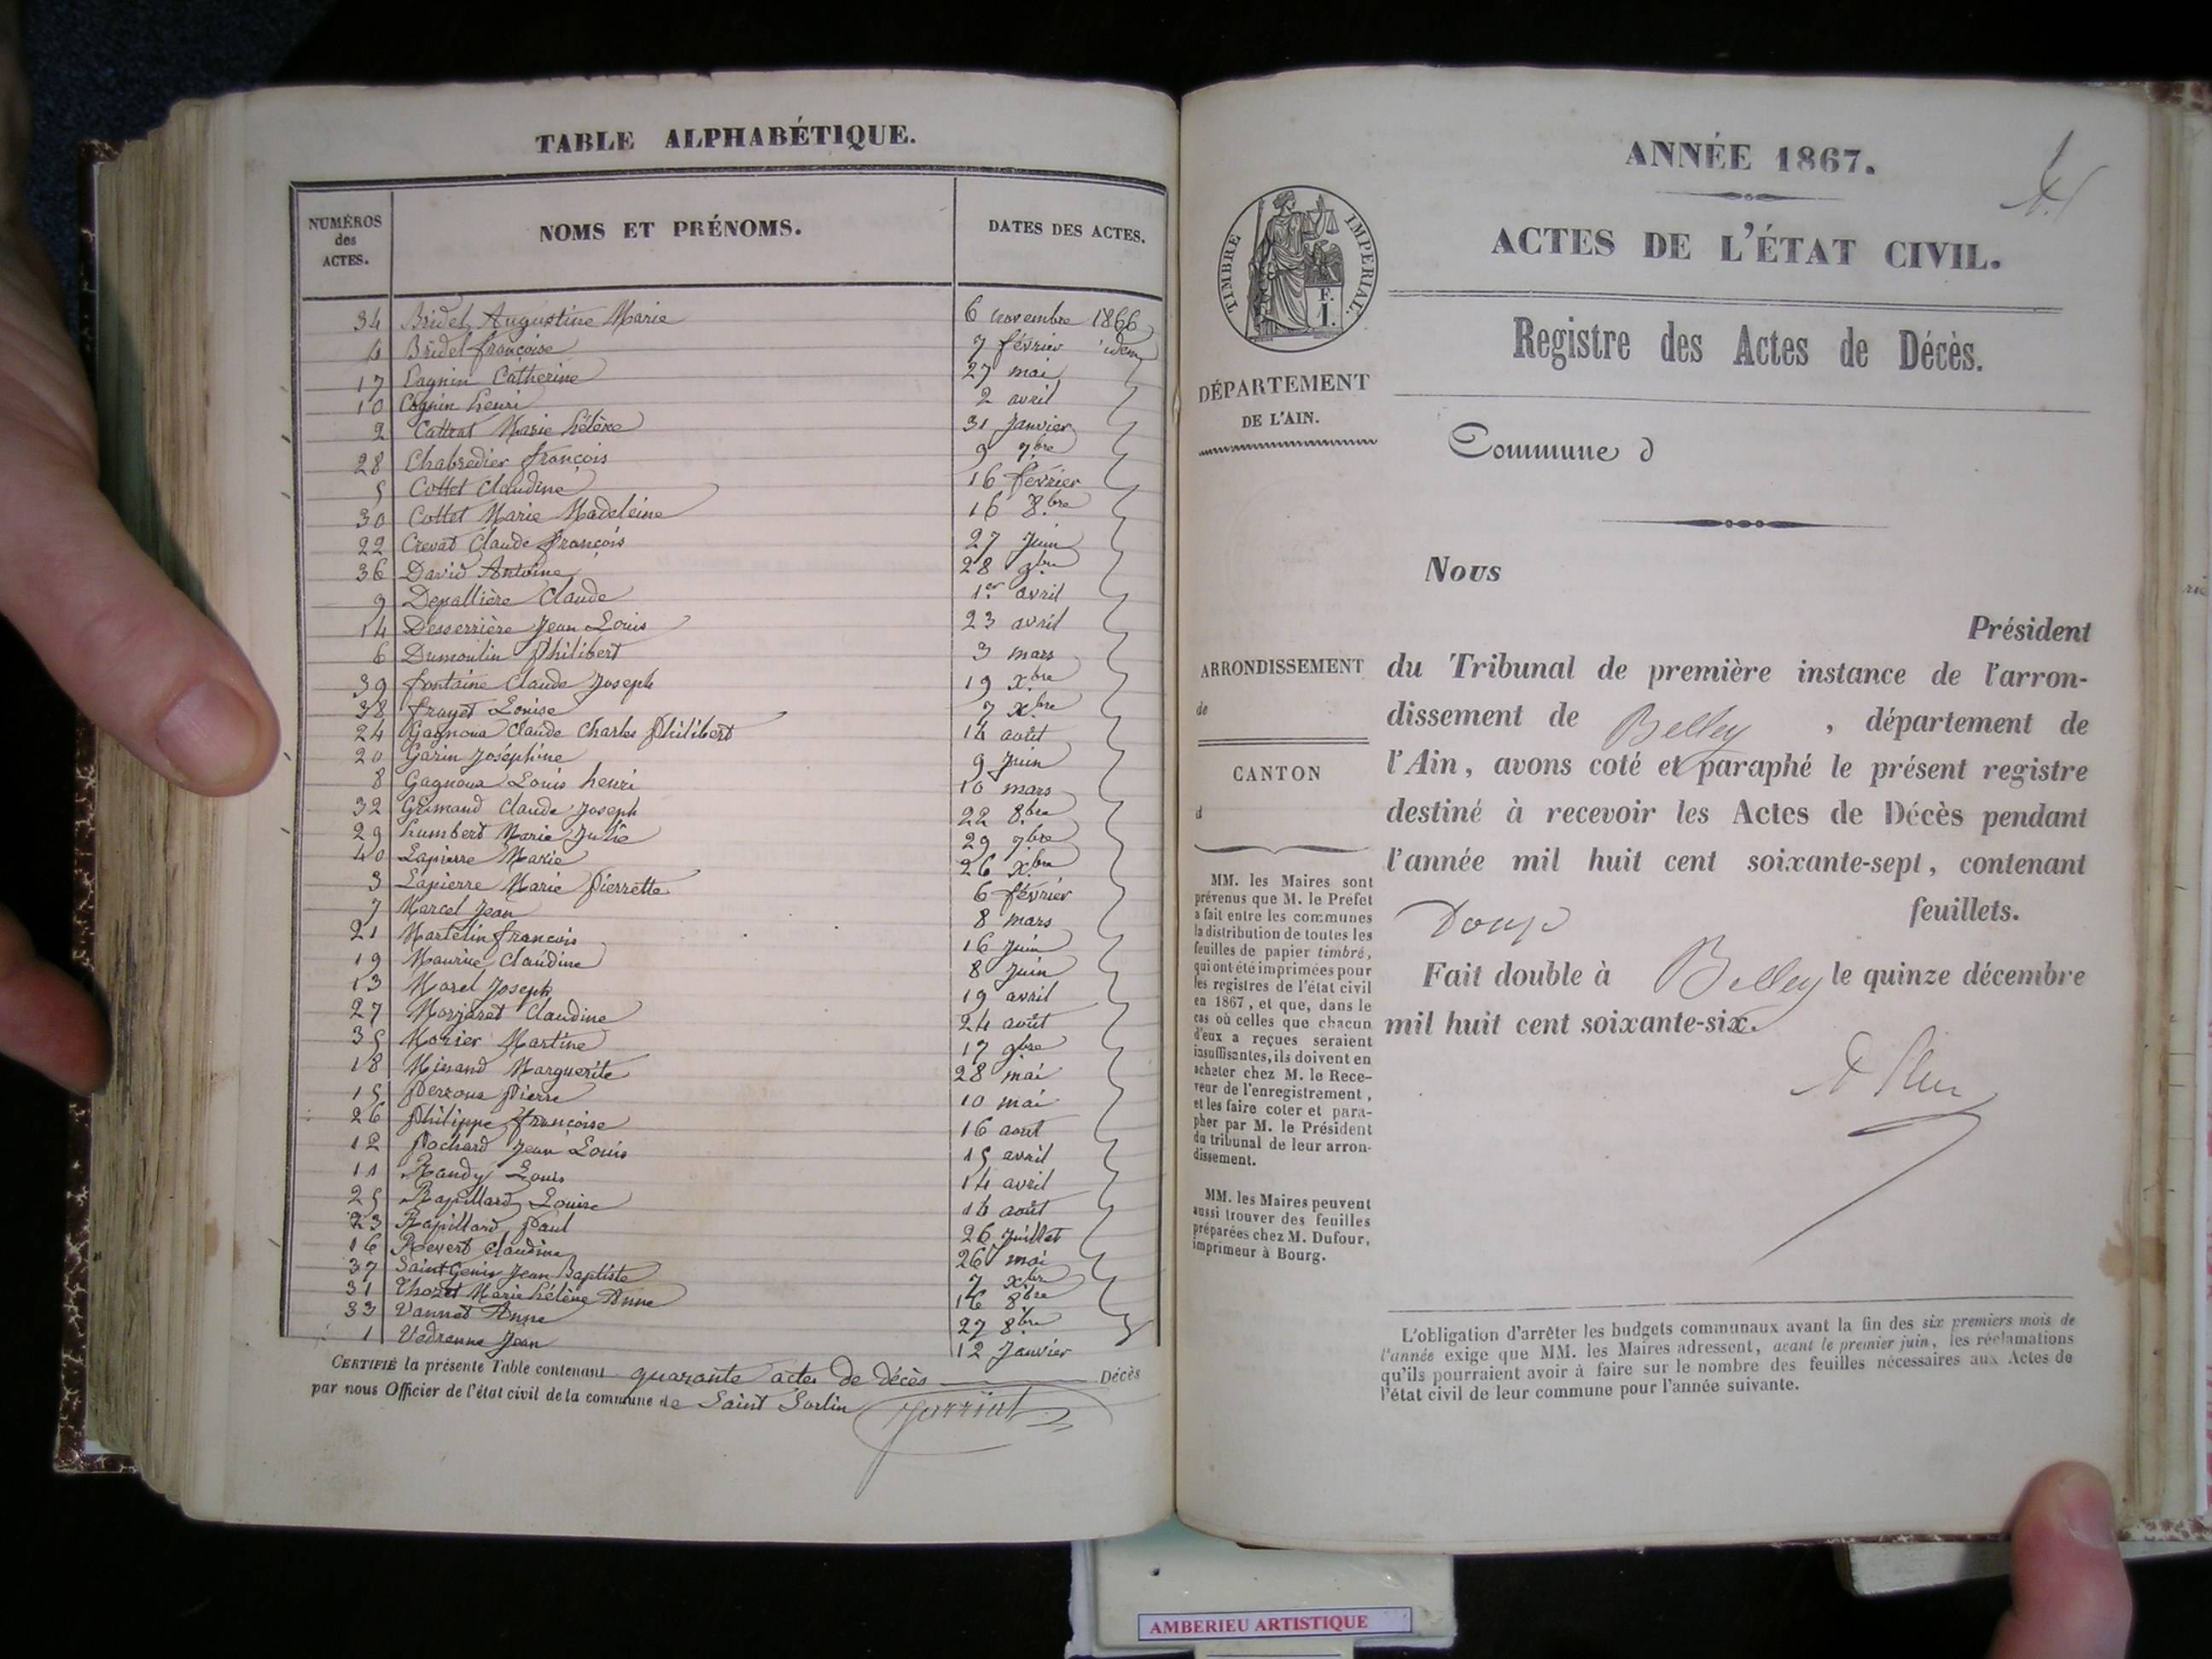 TABLE ALPHABÉTIQUE.
NUMÉROS des ACTES.
NOMS ET PRÉNOMS.
DATES DES ACTES.
34 Bridel Augustine Marie 6 novembre 1866
4 Bridel françoise 7 février idem
17 Cagnin Catherine 27 mai
10 Cognin henri 2 avril
2 Marie hélène 31 Janvier
28 Chabredier françois 9 7bre
5 Cottet Claudine 16 février
30 Cottet Marie Madeleine 16 8bre
22 Crevat Claude François 27 Juin
36 David Antoine 28 9bre
9 Depallière Claude 1er avril
14 Desserrière Jean Louis 23 avril
6 Dumoulin Philibert 3 mars
39 fontaine Claude Joseph 19 Xbre
38 frayet Louise 7 Xbre
24 Gagnoux Claude Charles Philibert 14 août
20 Garin Joséphine 9 Juin
8 Gagnoux Louis henri 10 mars
32 Grimand Claude Joseph 22 8bre
29 humbert Marie Julie 29 7bre
40 Lapierre Marie 26 Xbre
3 Lapierre Marie Pierrette 6 février
7 Marcel Jean 8 mars
21 Martelin françois 16 Juin
19 Claudine 8 Juin
13 Morel Joseph 19 avril
27 Morjaret Claudine 24 août
35 Monier Martine 17 9bre
18 Marguerite 28 mai
15 Perroux Pierre 10 mai
26 Philippe françoise 16 août
12 Pochard Jean Louis 15 avril
11 Randy Louis 14 avril
25 Rapillard Louise 14 août
23 Rapillard Paul 26 Juillet
16 Revert Claudine 26 mai
37 Saint Genis Jean Baptiste 7 Xbre
31 Thozet Marie hélène Anne 16 8bre
33 Vannet Anne 27 8bre
1 Vedrenne Jean 12 Janvier
CERTIFIÉ la présente Table contenant quarante actes de décès Décès
par nous Officier de l'état civil de la commune de Saint Sorlin
ANNÉE 1867.
ACTES DE L'ÉTAT CIVIL.
TIMBRE IMPÉRIAL.
Registre des Actes de Décès.
DÉPARTEMENT
DE L'AIN.
Commune d
Nous
Président
ARRONDISSEMENT
de
CANTON
d
du Tribunal de première instance de l'arron-
dissement de Belley, département de
l'Ain, avons coté et paraphé le présent registre
destiné à recevoir les Actes de Décès pendant
l'année mil huit cent soixante-sept, contenant
Douze feuillets.
Fait double à Belley le quinze décembre
mil huit cent soixante-six.
MM. les Maires sont
prévenus que M. le Préfet
a fait entre les communes
la distribution de toutes les
feuilles de papier timbré,
qui ont été imprimées pour
les registres de l'état civil
en 1867, et que, dans le
cas où celles que chacun
d'eux a reçues seraient
insuffisantes, ils doivent en
acheter chez M. le Rece-
veur de l'enregistrement,
et les faire coter et para-
pher par M. le Président
du tribunal de leur arron-
dissement.
MM. les Maires peuvent
aussi trouver des feuilles
préparées chez M. Dufour,
imprimeur à Bourg.
L'obligation d'arrêter les budgets communaux avant la fin des six premiers mois de
l'année exige que MM. les Maires adressent, avant le premier juin, les réclamations
qu'ils pourraient avoir à faire sur le nombre des feuilles nécessaires aux Actes de
l'état civil de leur commune pour l'année suivante.
AMBERIEU ARTISTIQUE